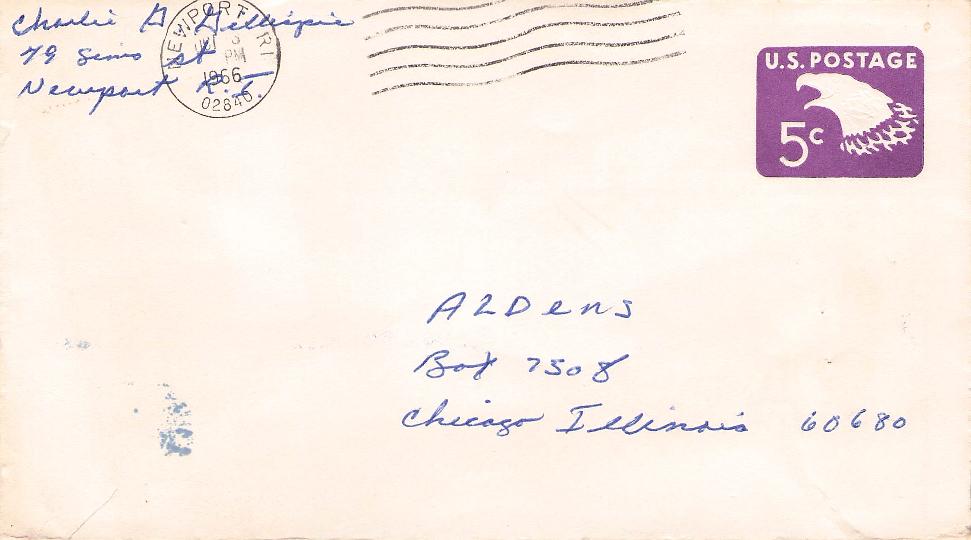 Charlie G Gillispie
79 Sims st
Newport R.I.
NEWPORT, RI
PM
1966
02840
U.S. POSTAGE
5c
ALDens
Box 7508
Chicago Illinois 60680